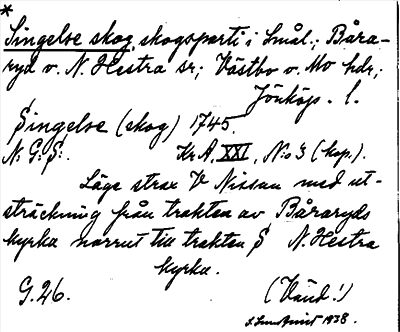 *
Singelse skog, skogsparti i Smål.; Båra-
ryd o. N. Hestra sr; Västbo o. Mo hdr,
Jönköp. l.
Singelse (skog) 1745.
N: G: S: Kr A, XXI, N:o 3 (kop.).
Läge strax V Nissan med ut-
sträckning från trakten av Båraryds
kyrka norrut till trakten S N. Hestra
kyrka.
G. 26. (Vänd!)
1938.